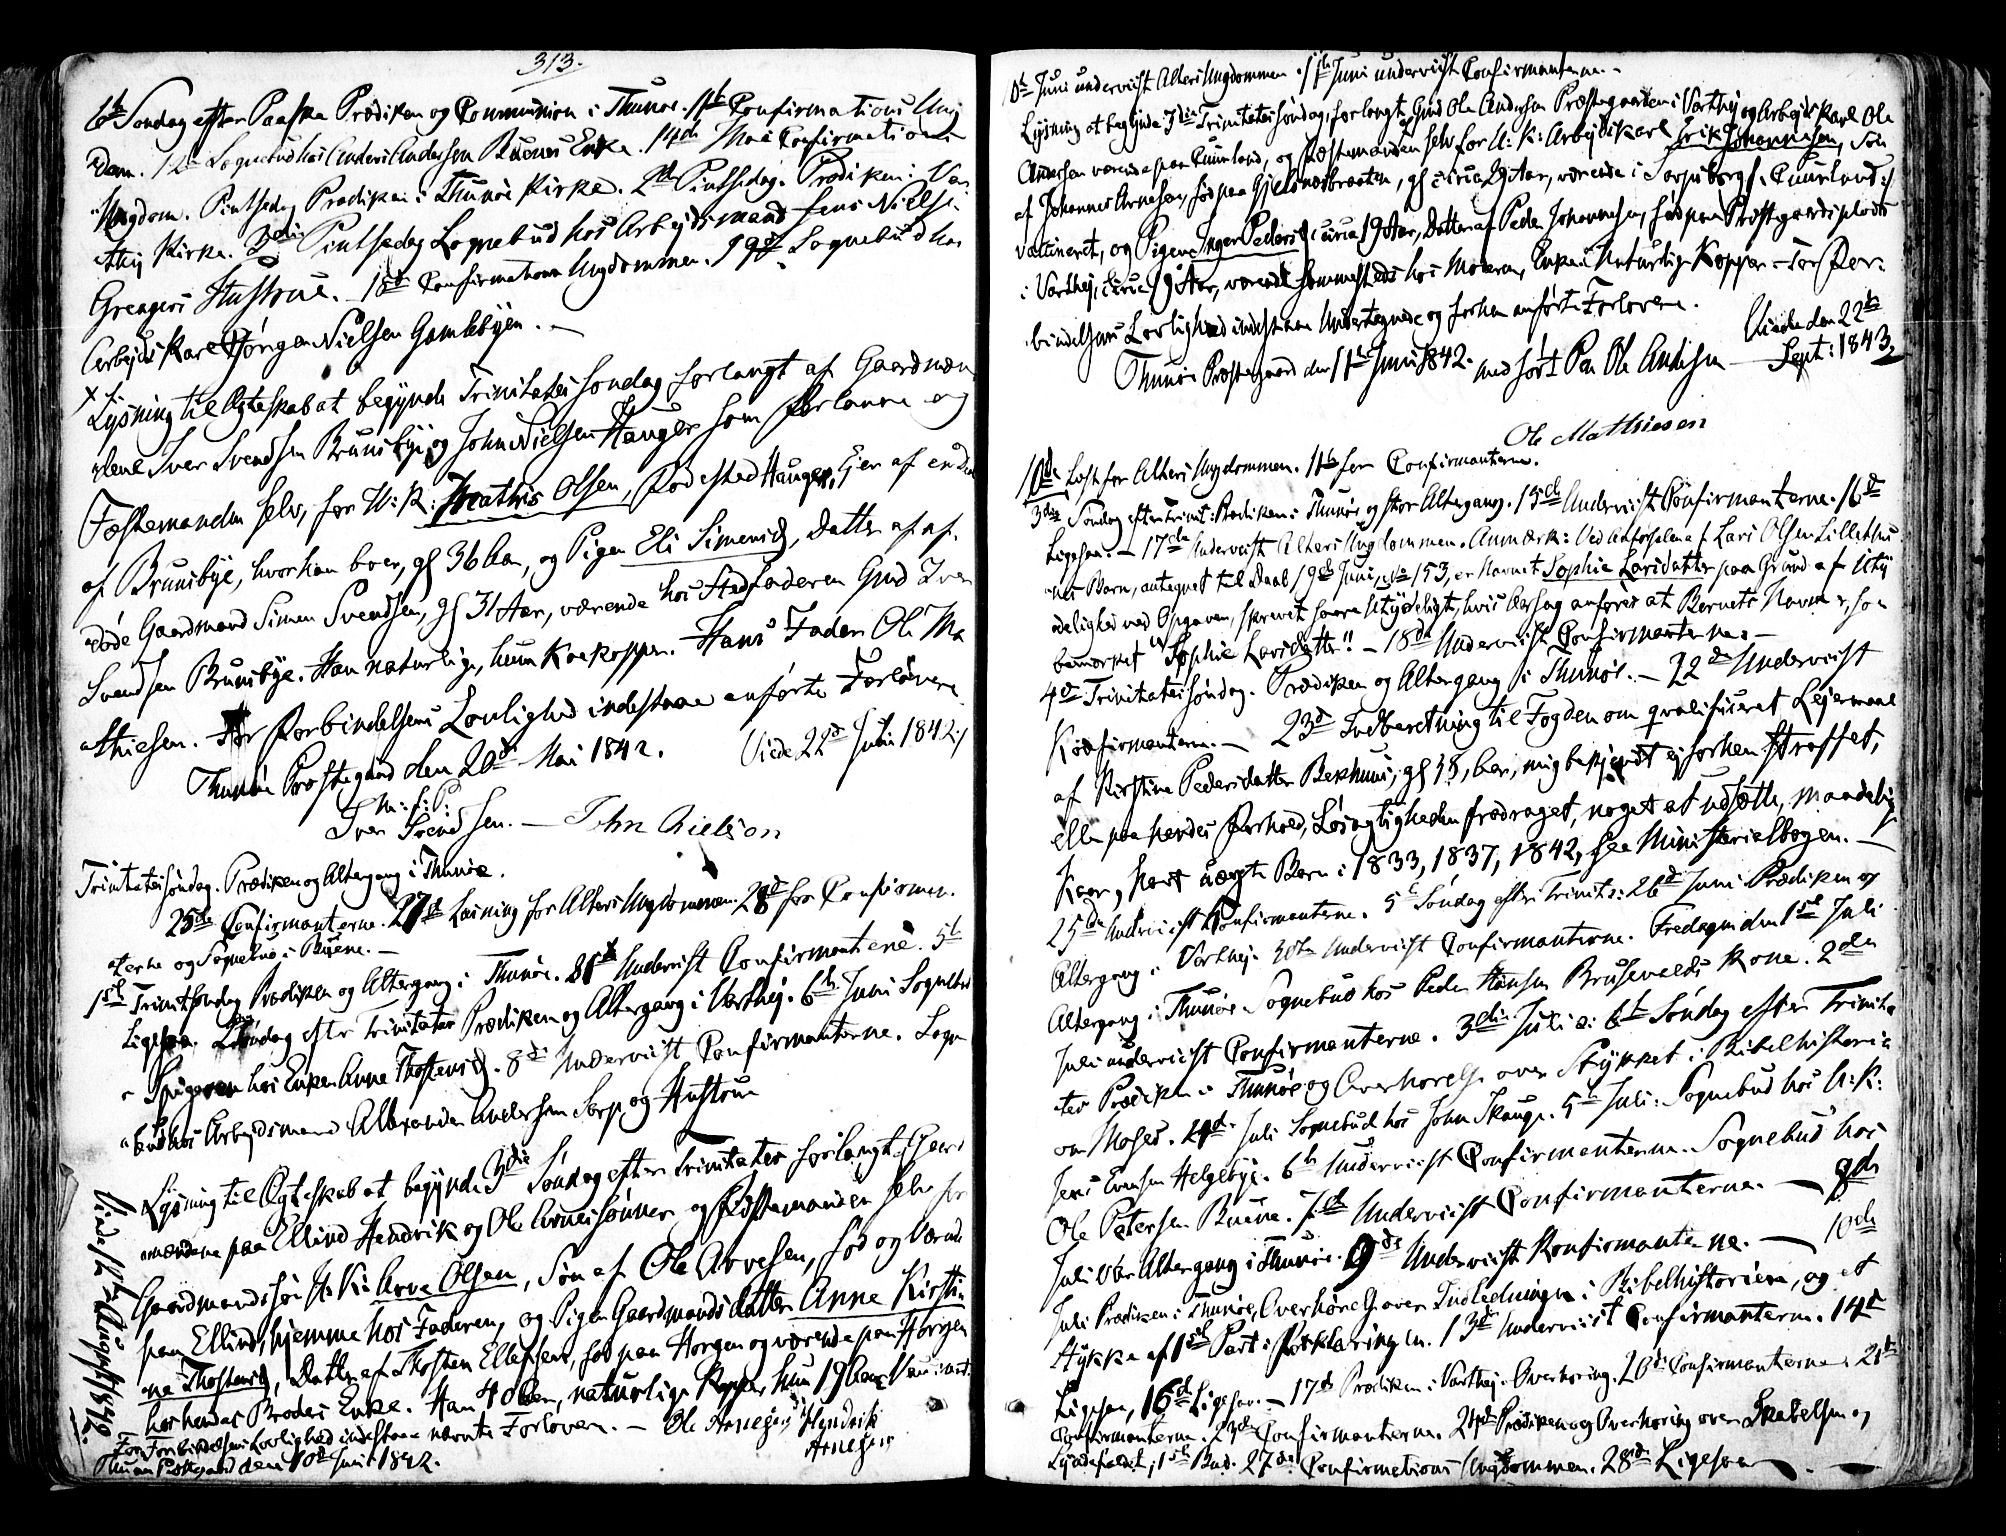 313.
6te Søndag efter Paaske Prædiken og Communion i Thunøe. 11te Confirmations Ung
dom. 12te Sognebud hos Anders Andersen Buenes Enke. 14de Mai Confirmations
Ungdom. Pintsedag Prædiken i Thunøe Kirke. 2den Pintsedag. Prædiken i Var
thej Kirke. 3die Pintsedag Sognebud hos Arbejdsmand Jens Nielsen
Grengers Hustrue. 18de Confirmations Ungdommen. 19de Sognebud hos
Arbejds Karl Jørgen Nielsen Gamlebyen.
Lysning til Ægteskab at begynde Trinitatis søndag forlangt af Gaardmæn
dene Iver Svendsen Brunsbye og John Nielsen Hauger som Forlovere og
Fæstemanden selv, for U: K: Mathis Olsen, Fødested Hauger, Ejer af en Deel
af Brunsbye, hvor han boer, gl 36 Aar, og Pigen Eli Simensd, Datter af af-
døde Gaardmand Simen Svendsen, gl 31 Aar, værende hos Stedfaderen Gmd Iver
Svendsen Brunsbye. Han naturlige, hun Koekopper. Hans Fader Ole Ma
thiesen. For Forbindelsens Lovlighed indestaae anførte Forlovere
Thunøe Præstegaard den 20de Mai 1842. Viede 22de Juli 1842
m: f: P:
Iver Svendsen. — John Nielson
Trinitatis søndag. Prædiken og Altergang i Thunøe.
25de Confirmanterne. 27de Læsning for Alters Ungdommen. 28de for Confirman
terne og Sognebud i Buene.
1ste Trinit søndag Prædiken og Altergang i Thunøe. Underviist Confirmanterne. 5te
Ligesaa. Søndag efter Trinitatis Prædiken og Altergang i Varthej. 6te Juni Sognebud
hos Enken Anne Thostensd. 8de Underviist Confirmanterne. Sogne
bud hos Arbejdsmand Alexander Andersen Sorp og Hustrue
Lysning til Ægteskab at begynde 3die Søndag efter Trinitatis forlangt Gaard
mændene paa Ellind Hendrik og Ole Arnesønner og Fæstemanden selv for
Gaardmandssøn U: K: Arve Olsen, Søn af Ole Arvesen, fød og Værende
paa Ellind, hjemme hos Faderen, og Pigen Gaardmandsdatter Anne Kirsti
ne Thostensd, Datter af Thosten Ellefsen, fød paa Horgen og værende paa Horgen
hos hendes Broders Enke. Han 40 Aar, naturlige Kopper, hun 19 Aar
For Forbindelsens Lovlighed indestaae nævnte Forlovere. — Ole Arnesen Hendrik
Thunøe Præstegaard den 10de Juni 1842. Arnesen
Viede 12te August 1842.
Juni underviist Alters Ungdommen. 11te Juni underviist Confirmanterne.
Lysning at begynde 3die Trinitatis søndag, forlangt Gmd Ole Andersen Præstegaarden i Varthej og Arbejdskarl Ole
Andersen værende paa Cuurland, og Fæstemanden selv for U: K: Arbejdskarl Erik Johannesen, Søn
af Johannes Arnesen, fød paa Gjelsnesbraaten, gl circa 29 Aar, værende i Sarpsborg,
vaccineret, og Pigen Inger Pedersd circa 19 Aar, Datter af Peder Johannesen, fød paa Præstegaardspladse
i Varthej, circa 19 Aar, værende sammesteds hos Moderen, Enke. Naturlige Kopper. For For-
bindelsens Lovlighed indestaae Undertegnede og forhen anførte Forlovere.
Thunøe Præstegaard den 11te Juni 1842. med ført Pen Ole Andersen — Viede den 22de
Sept: 1843
Ole Mathiesen
10de Læst for Alters Ungdommen. 11te for Confirmanterne.
3die Søndag efter Trinit: Prædiken i Thunøe og stor Altergang. 15de Underviist Confirmanterne. 16de
Ligesaa. — 17de Underviist Alters Ungdommen. Anmærk: Ved Anførselen af Lars Olsen Lillethu
nes Barn, antegnet til Daab 19de Juni, No 153, er Navnet Sophie Larsdatter paa Grund af Uty
delighed ved Opgaven, skrevet saare Utydeligt, hvis Aarsag anføres at Barnets Navn er, som
bemærket "Sophie Larsdatter!! — 18de Underviist Confirmanterne. —
4de Trinitatis søndag. Prædiken og Altergang i Thunøe. — 22de Underviist
Konfirmanterne. — 23de Indberetning til Fogden om qvalificeret Lejermaal
af Kirstine Pedersdatter Bekhuus, gl 38, ber, mig bekjendt ej forhen straffet,
eller paa hendes Forhold, Løsagtigheden fradraget, noget at udsætte, maadelig
Kaar, havt uægte Børn i 1833, 1837, 1842, see Ministerialbogen. —
25de Underviist Konfirmanterne. 5te Søndag efter Trinit: 26de Juni Prædiken og
Altergang i Varthej. 30te Underviist Confirmanterne. Fredagen den 1ste Juli
Altergang i Thunøe. Sognebud hos Peder Hansen Brusevolds Kone. 2den
Juli underviist Confirmanterne. 3die Juli 6te Søndag efter Trinita
tis Prædiken i Thunøe og Overhørelse over Stykket i Bibelhistorie
om Moses. 4de Juli Sognebud hos John Skauge. 5te Juli: Sognebud hos U: K:
Jens Evensen Helgebye. 6te Underviist Confirmanterne. Sognebud hos
Ole Petersen Buene. 7de Underviist Confirmanterne. — 8de
Juli Altergang i Thunøe. 9de Underviist Konfirmanterne. — 10de
Juli Prædiken i Thunøe, Overhørelse over Indledningen i Bibelhistorien, og et
Stykke af 1ste Part i Forklaringen. 13de Underviist Confirmanterne. 14de
Ligesaa, 16de Ligesaa. — 17de Prædiken i Varthej. Overhøring. 20de Confirmanterne. 21de
Confirmanterne. 23de Confirmanterne. 24de Prædiken og Overhøring over Skabelsen og
Syndefaldet, 1ste Bud. 27de Confirmations Ungdommen. 28de Ligesaa